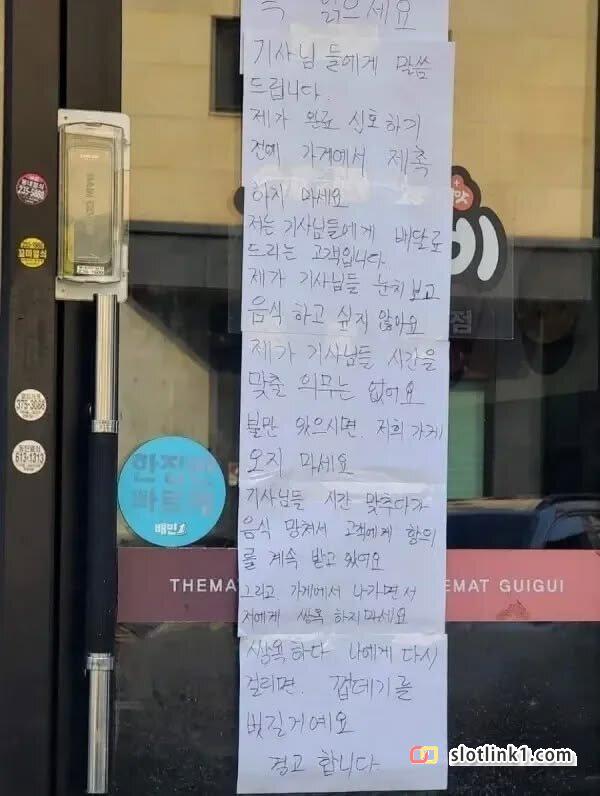 꼭 읽으세요
기사님들에게 말씀
드립니다.
제가 완료 신호하기
전에 가게에서 제촉
하지 마세요
저는 기사님들에게 배달로
드리는 고객입니다.
제가 기사님들 눈치보고
음식 하고 싶지 않아요
제가 기사님들 시간을
맞출 의무는 없어요
불만 있으시면. 저희 가게
오지 마세요
기사님들 시간 맞추다가
음식 망쳐서 고객에게 항의
를 계속 받고 있어요
그리고 가게에서 나가면서
저에게 쌍욕 하지마세요
쌍욕하다 나에게 다시
걸리면. 껍데기를
벗길거예요
경고 합니다.
235-5888
375-3088
613-1313
한집배
배민1
THEMA
EMAT GUIGUI
점
slotlink1.com